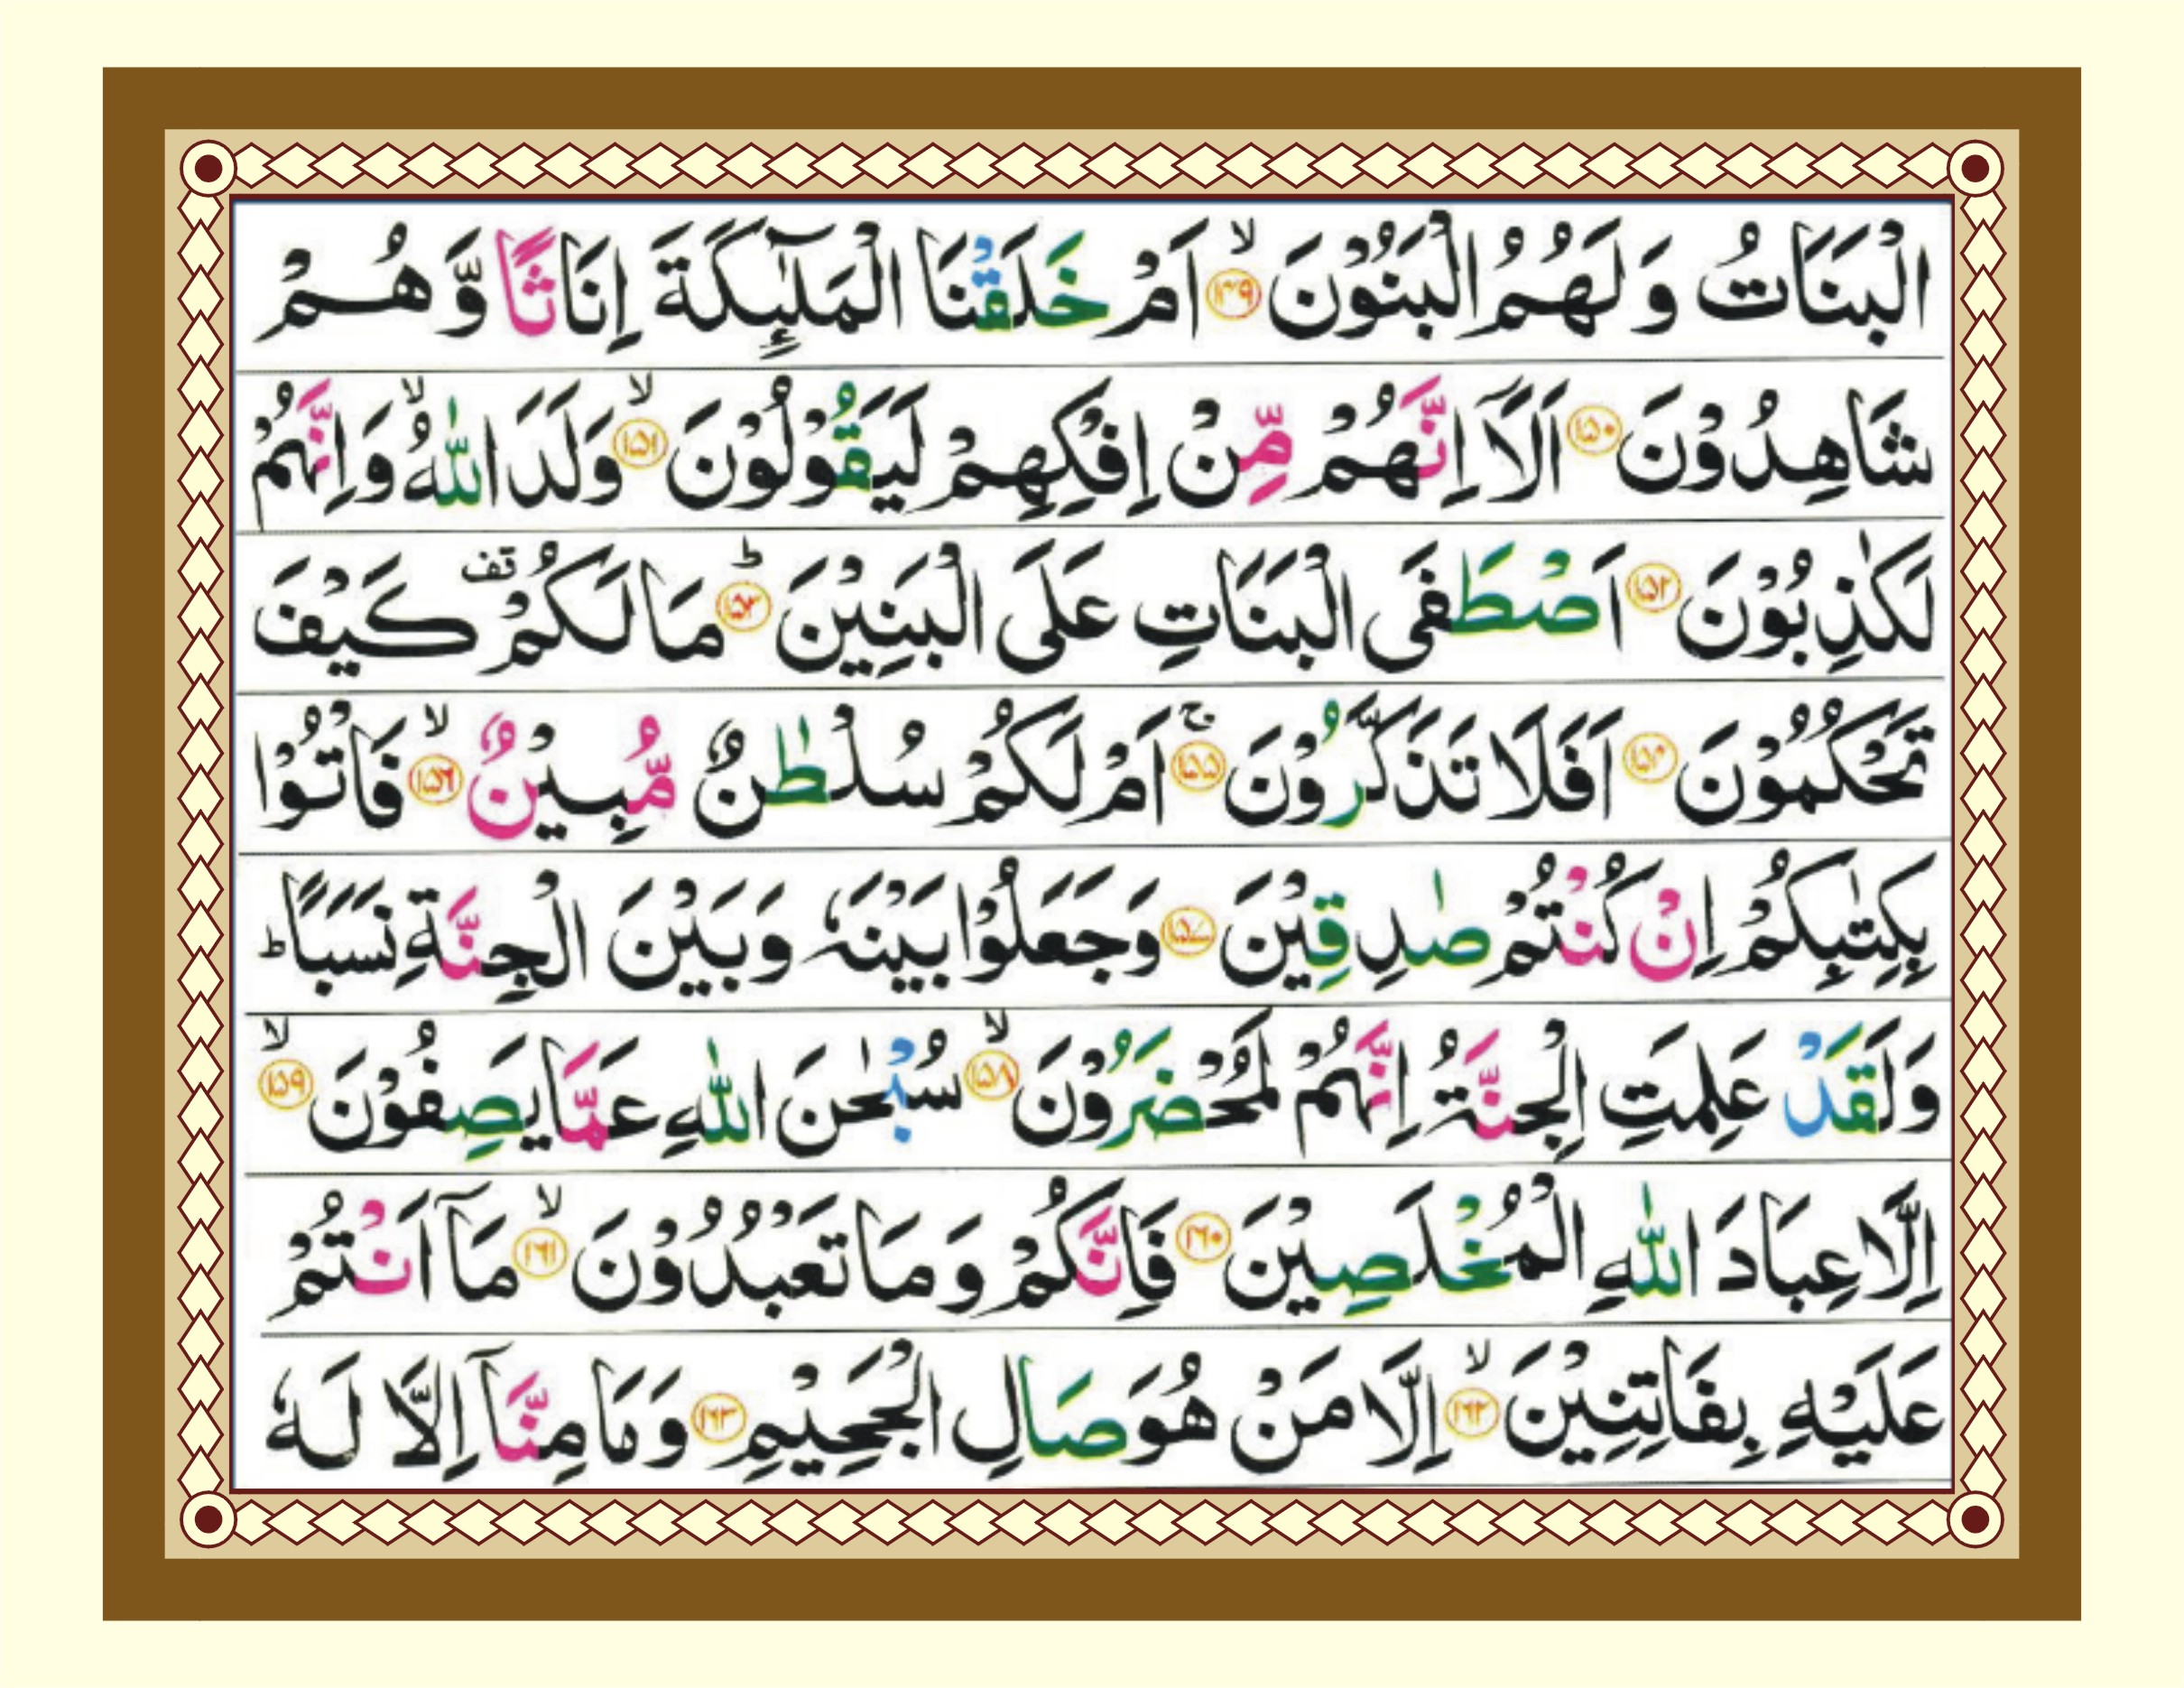 الْبَنَاتُ وَلَهُمُ الْبَنُوْنَ ۙ﴿۱۴۹﴾ اَمْ خَلَقْنَا الْمَلٰٓئِكَةَ اِنَاثًا وَّهُمْ
شَاهِدُوْنَ ﴿۱۵۰﴾ اَلَاۤ اِنَّهُمْ مِّنْ اِفْكِهِمْ لَيَقُوْلُوْنَ ۙ﴿۱۵۱﴾ وَلَدَ اللّٰهُ ۙ وَاِنَّهُمْ
لَكٰذِبُوْنَ ﴿۱۵۲﴾ اَصْطَفَى الْبَنَاتِ عَلَى الْبَنِيْنَ ؕ﴿۱۵۳﴾ مَا لَكُمْ قف كَيْفَ
تَحْكُمُوْنَ ﴿۱۵۴﴾ اَفَلَا تَذَكَّرُوْنَ ۚ﴿۱۵۵﴾ اَمْ لَكُمْ سُلْطٰنٌ مُّبِيْنٌ ۙ﴿۱۵۶﴾ فَاْتُوْا
بِكِتٰبِكُمْ اِنْ كُنْتُمْ صٰدِقِيْنَ ﴿۱۵۷﴾ وَجَعَلُوْا بَيْنَهٗ وَبَيْنَ الْجِنَّةِ نَسَبًا ؕ
وَلَقَدْ عَلِمَتِ الْجِنَّةُ اِنَّهُمْ لَمُحْضَرُوْنَ ۙ﴿۱۵۸﴾ سُبْحٰنَ اللّٰهِ عَمَّا يَصِفُوْنَ ۙ﴿۱۵۹﴾
اِلَّا عِبَادَ اللّٰهِ الْمُخْلَصِيْنَ ﴿۱۶۰﴾ فَاِنَّكُمْ وَمَا تَعْبُدُوْنَ ۙ﴿۱۶۱﴾ مَاۤ اَنْتُمْ
عَلَيْهِ بِفَاتِنِيْنَ ۙ﴿۱۶۲﴾ اِلَّا مَنْ هُوَ صَالِ الْجَحِيْمِ ﴿۱۶۳﴾ وَمَا مِنَّاۤ اِلَّا لَهٗ